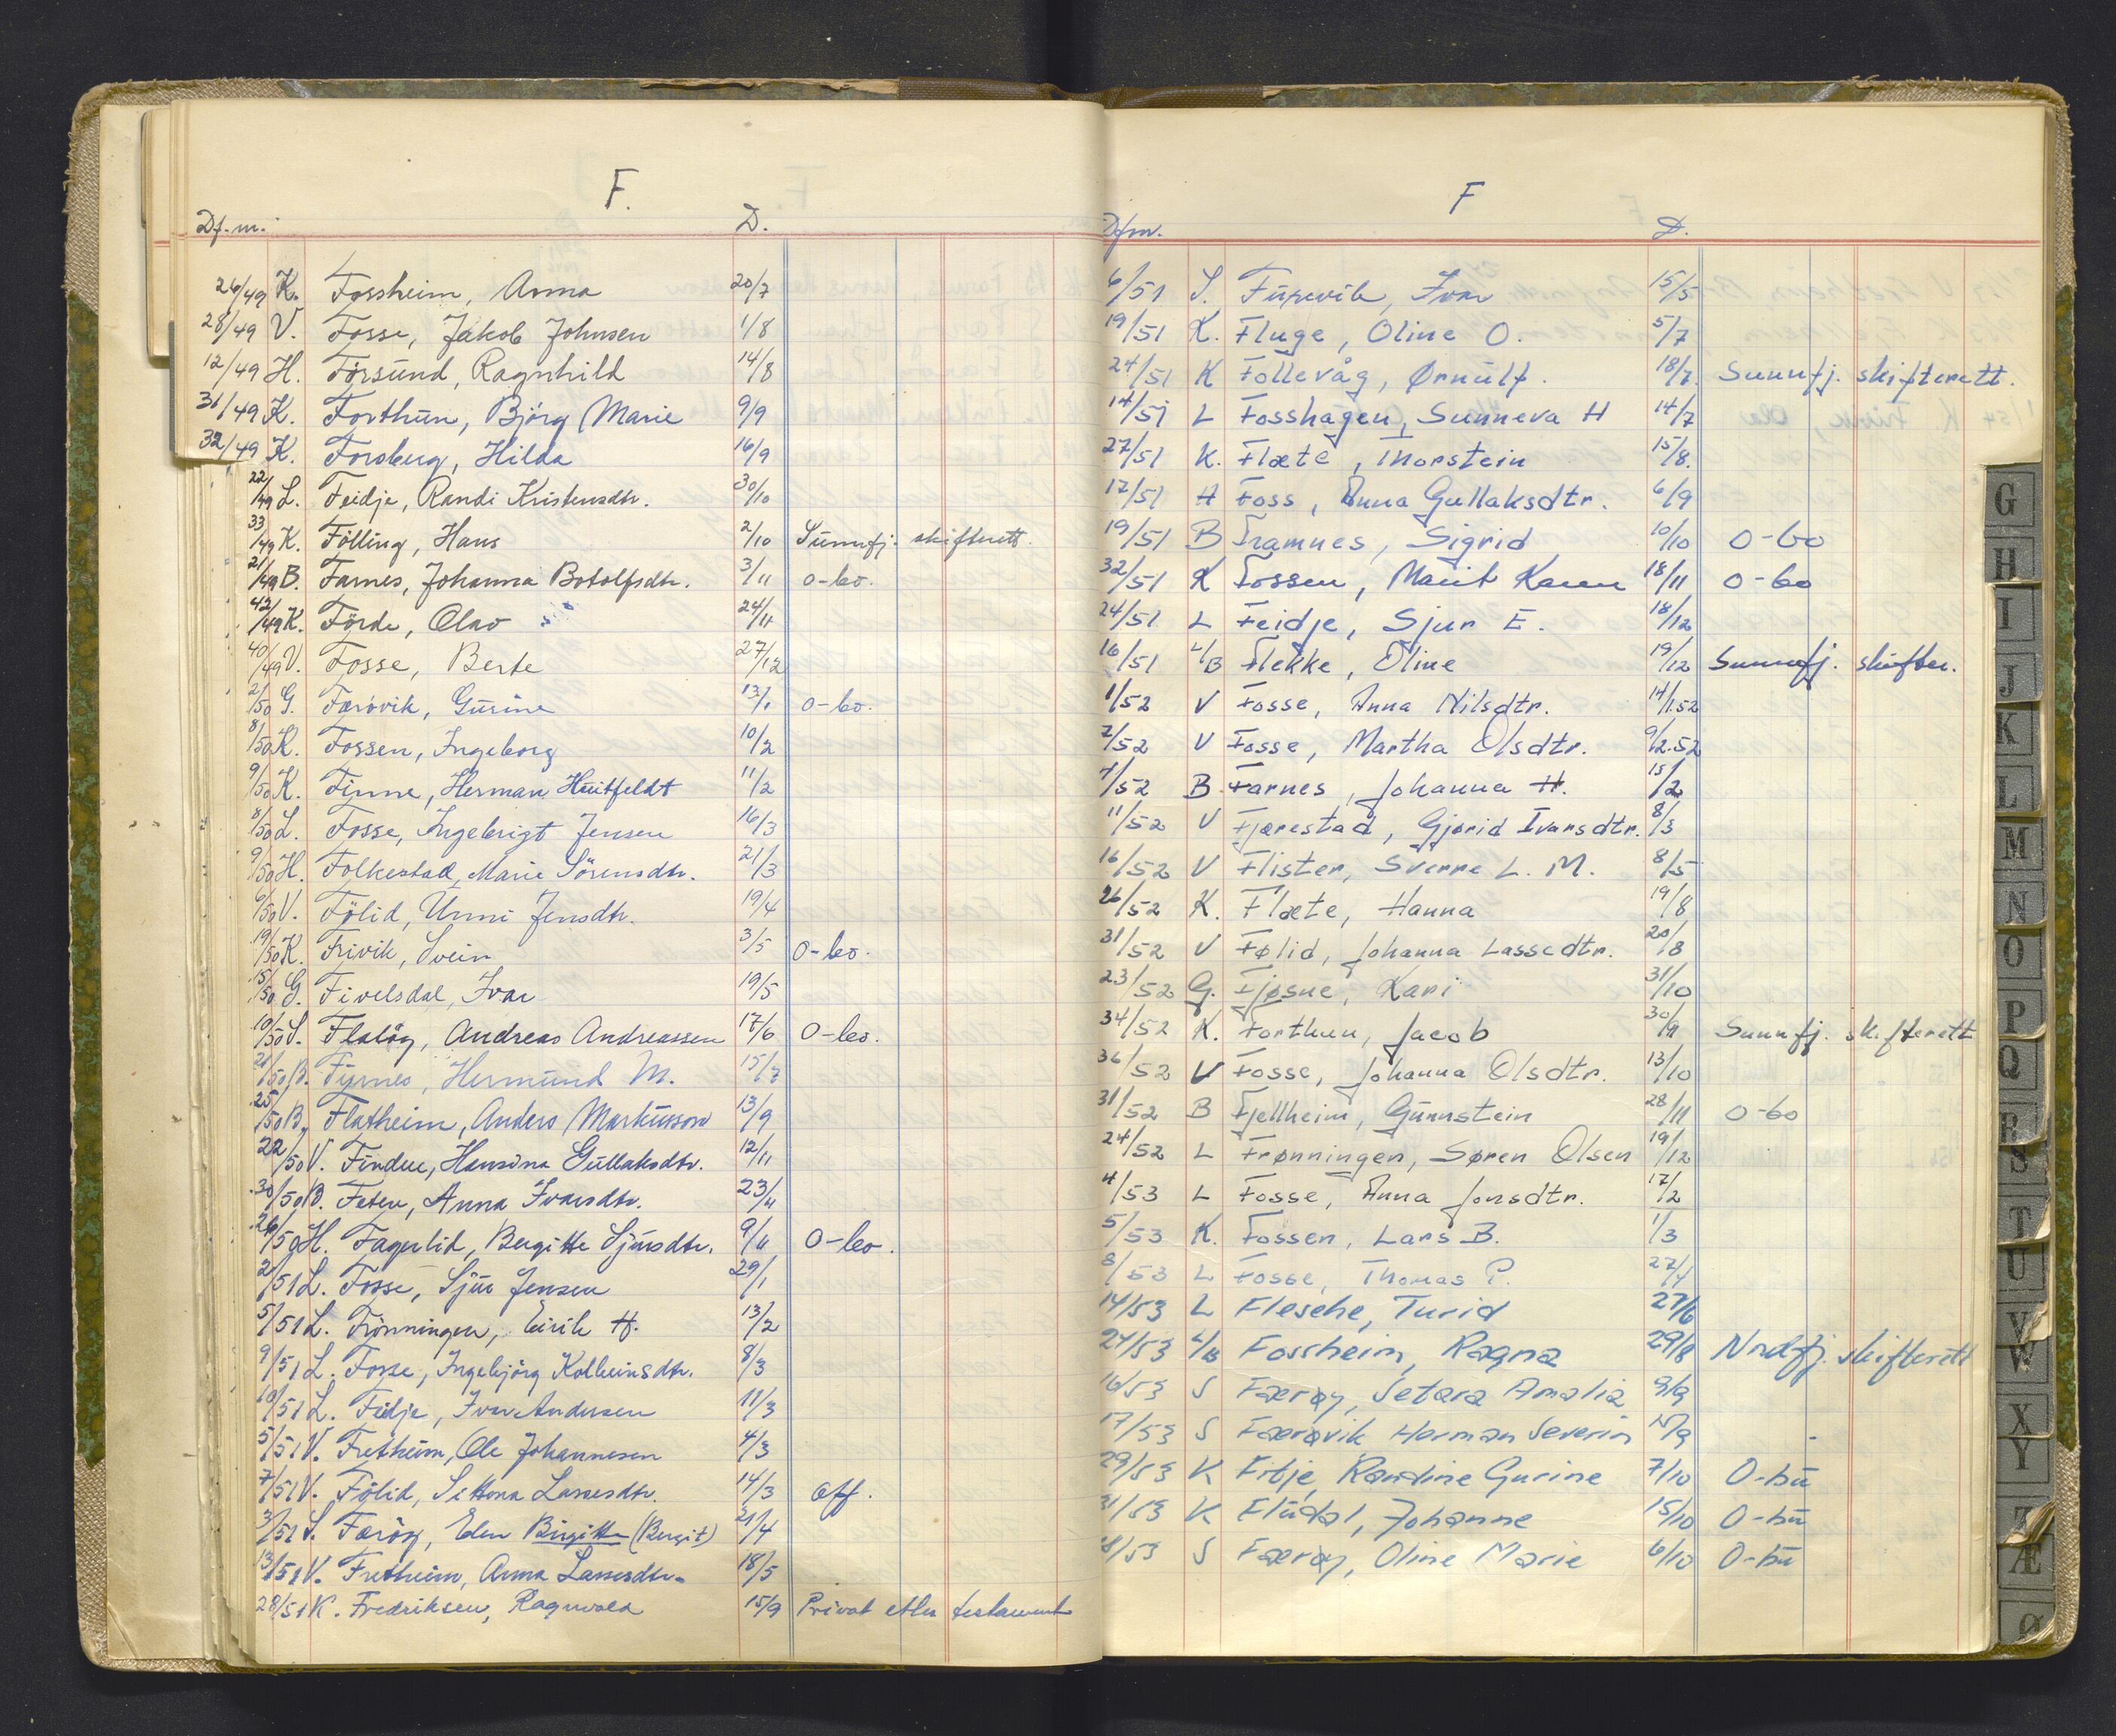 F.
Df. nr. D.
26/49 K. Fossheim, Anna 20/7
28/49 V. Fosse, Jakob Johnsen 1/8
12/49 H. Försund, Ragnhild 14/8
31/49 K. Forthun, Björg Marie 9/9
32/49 K. Forsberg, Hilda 16/9
22/49 L. Feidje, Randi Kristensdtr. 30/10
33/49 K. Fölling, Hans 2/10 Sunnfj. skifterett.
21/49 B. Farnes, Johanna Botolfsdtr. 3/11 o-bo.
42/49 K. Förde, Olav 24/11
40/49 V. Fosse, Berte 27/12
2/50 G. Færövik, Gurine 13/1 o-bo.
8/50 K. Fossen, Ingeborg 10/2
9/50 K. Finne, Herman Huitfeldt 11/2
8/50 L. Fosse, Ingebrigt Jensen 16/3
9/50 H. Folkestad, Marie Sörensdtr. 21/3
6/50 V. Fölid, Unni Jensdtr. 19/4
19/50 K. Frivik, Svein 3/5 o-bo.
15/50 G. Fivelsdal, Ivar 19/5
10/50 S. Flolöy, Andreas Andreassen 17/6 o-bo.
21/50 B. Fyrnes, Hermund M. 15/7
25/50 B. Flatheim, Anders Markusson 13/9
22/50 V. Finden, Hansina Gullaksdtr. 12/11
30/50 B. Feten, Anna Ivarsdtr. 23/11
26/50 H. Fagerlid, Bergitte Sjursdtr. 9/11 o-bo.
2/51 L. Fosse, Sjur Jensen 29/1
5/51 L. Frönningen, Eirik H. 13/2
9/51 L. Fosse, Ingebjörg Kolbeinsdtr. 8/3
10/51 L. Feidje, Ivar Andersen 11/3
5/51 V. Fretheim, Ole Johannesen 4/3
7/51 V. Fölid, Lassesdtr. 14/3 off.
3/51 S. Færöy, Elen Birgitte (Bergit) 21/4
13/51 V. Fretheim, Anna Lassesdtr. 18/5
28/51 K. Fredriksen, Ragnvald 15/9 Privat etter testament
F
Dfnr. D.
6/51 S. Furevik, Ivar 15/5
19/51 K. Fluge, Oline O. 5/7
24/51 K Follevåg, Ørnulf. 18/7 Sunnfj. skifterett.
14/51 L Fosshagen, Sunneva H 14/7
27/51 K. Flæte, Thorstein 15/8.
17/51 H Foss, Anna Gullaksdtr. 6/9
19/51 B Framnes, Sigrid 10/10 o-bo
32/51 K Fossen, Marit Karen 18/11 o-bo
24/51 L Feidje, Sjur E. 18/12
16/51 L/B Flekke, Oline 19/12 Sunnfj. skifter.
1/52 V Fosse, Anna Nilsdtr. 14/1.52
7/52 V Fosse, Martha Olsdtr. 9/2.52
4/52 B Farnes, Johanna H. 15/2
11/52 V Fjærestad, Gjørid Ivarsdtr. 8/3
16/52 V Flister, Sverre L. M. 8/5
26/52 K. Flæte, Hanna 19/8
31/52 V Følid, Johanna Lassedtr. 20/8
23/52 G. Fjøsne, Kari 31/10
34/52 K. Forthun, Jacob 30/9 Sunnfj. skifterett
36/52 V Fosse, Johanna Olsdtr. 13/10
31/52 B Fjellheim, Gunnstein 28/11 o-bo
24/52 L Frønningen, Søren Olsen 19/12
4/53 L Fosse, Anna Jonsdtr. 17/2
5/53 K. Fossen, Lars B. 1/3
8/53 L Fosse, Thomas P. 22/4
14/53 L Flesche, Turid 27/6
24/53 L/B Fossheim, Ragna 29/8 Nrdfj. skifterett
16/53 S Færøy, Setara Amalia 9/9
17/53 S Færøvik Herman Severin 15/9 -
29/53 K Fitje, Randine Gurine 7/10 O-bu
31/53 K Fludal, Johanne 15/10 O-bu
18/53 S Færøy, Oline Marie 6/10 O-bu
G
H
I
J
K
L
M
N
O
P
Q
R
S
T
U
V
W
X
Y
Z
Æ
Ø